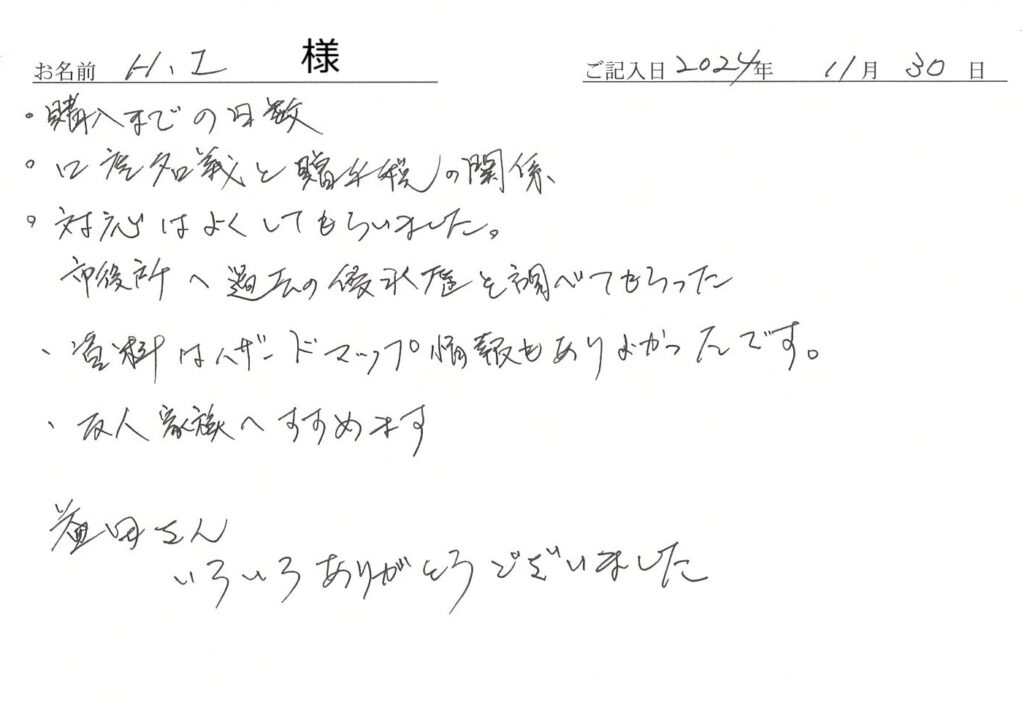 お名前 H.I 様 ご記入日 2024年 11月 30日
・購入までの日数
・口座名義と贈与税の関係、
・対応はよくしてもらいました。
市役所へ過去の浸水歴を調べてもらった
、資料はハザードマップ情報もありよかったです。
、友人家族へすすめます
益田さん
いろいろありがとうございました